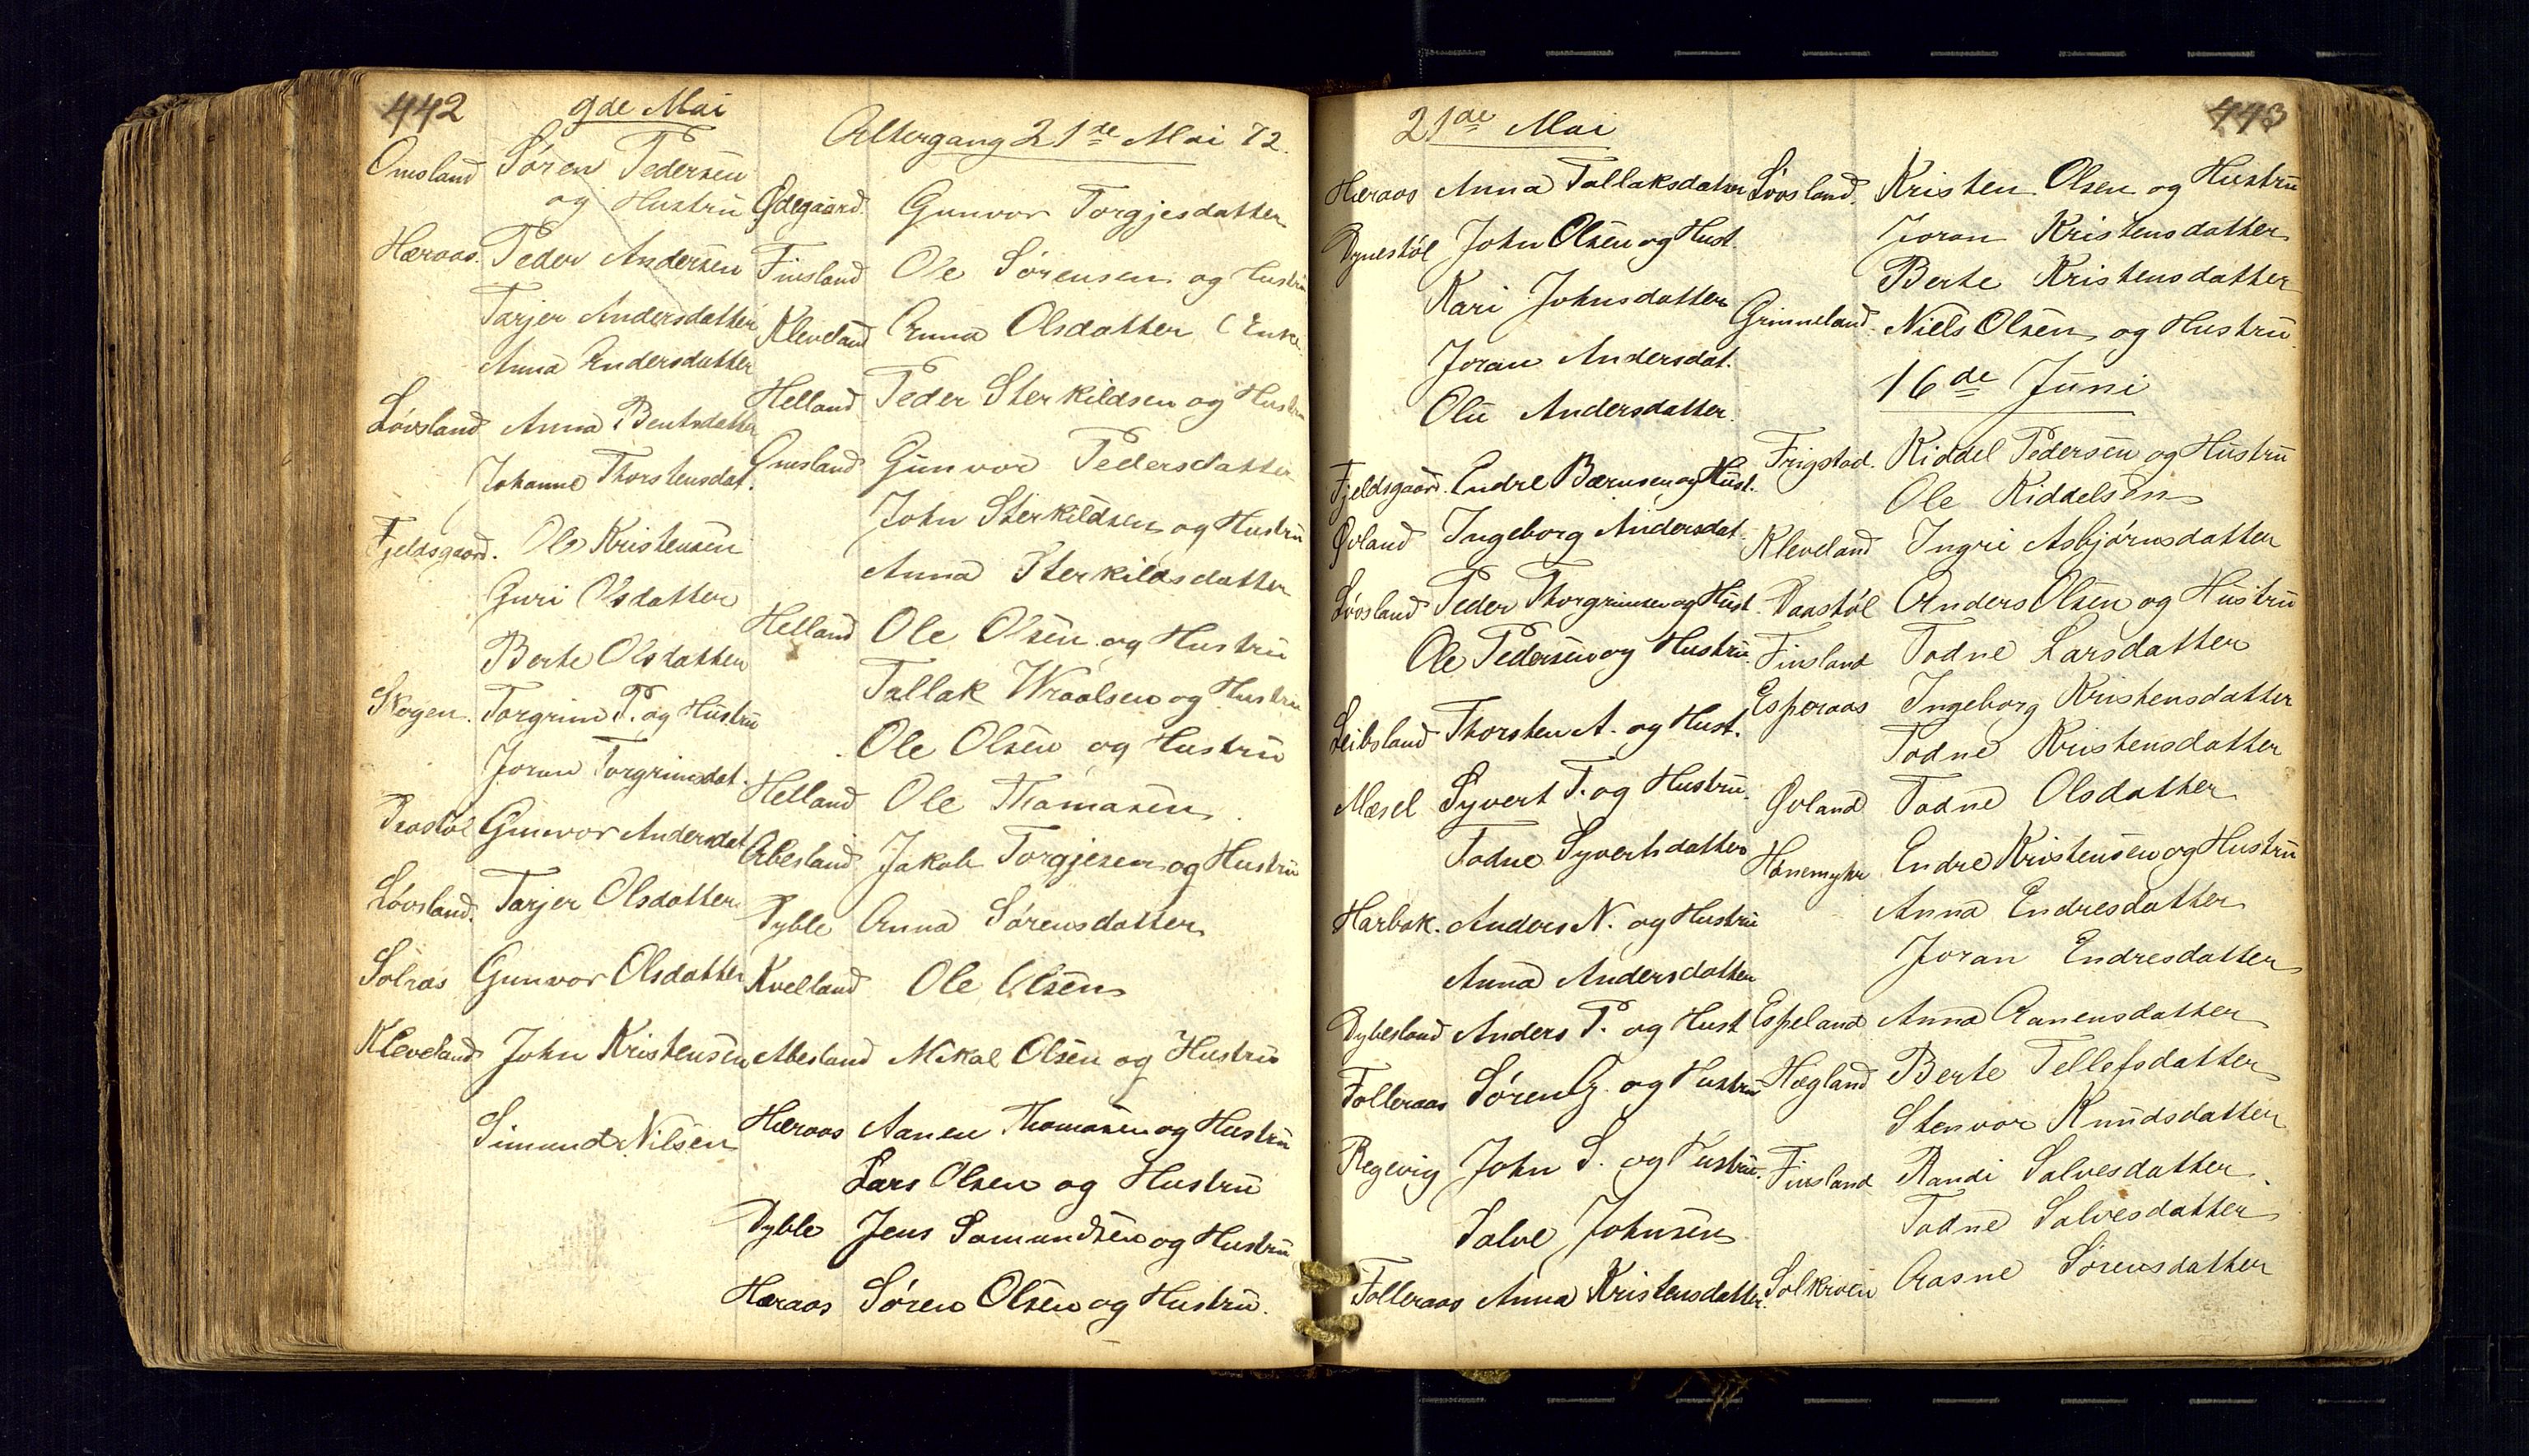 442
9de Mai
Omsland Søren Pedersen
og Hustru
Hæraas. Peder Andersen
Tarjer Andersdatter
Anna Endersdatter
Løvsland Anna Bentsdatter
Johanne Thorstensdat.
Fjeldsgaard. Ole Kristensen
Guri Olsdatter
Berte Olsdatter
Skogen. Torgrim P. og Hustru
Joran Torgrimsdat.
Gunvor Andersdat
Løvsland. Tarjer Olsdatter
Solaas Gunvor Olsdatter
Kleveland John Kristensen
Simund Nilsen
Altergang 21de Mai 72.
Ødegaard. Gunvor Torgjesdatter
Finsland Ole Sørensen og Hustru
Kleveland Anna Olsdatter (Enke
Helland Peder Sterkildsen og Hustru
Omsland Gunvor Pedersdatter
John Sterkildsen og Hustru
Anna Sterkildsdatter
Helland Ole Olsen og Hustru
Tallak Wraalsen og Hustru
Ole Olsen og Hustru
Helland Ole Thomasen
Abesland Jakob Torgjesen og Hustru
Dyble Anna Sørensdatter
Kvelland Ole Olsen
Abesland Mikal Olsen og Hustru
Hæraas Aanen Thomasen og Hustru
Lars Olsen og Hustru
Dyble Jens Samundsen og Hustru
Hæraas Søren Olsen og Hustru.
443
21de Mai
Hæraas Anna Tallaksdatter
Dynestøl John Olsen og Hust.
Kari Johnsdatter
Joran Andersdat.
Olu Andersdatter.
Fjeldsgaard. Endre Bærnsen og Hust.
Øvland Ingeborg Andersdat.
Løvsland Peder Thorgrimsen og Hust.
Ole Pedersen og Hustru.
Leibsland Thorsten A. og Hust.
Mæsel Syvert T. og Hustru.
Todne Syvertsdatter
Harbak. Anders N. og Hustru
Anna Andersdatter
Dybesland Anders P. og Hust
Folleraas Søren G. og Hustru
Regevig John S. og Hustru.
Salve Johnsen
Folleraas Anna Kristensdatter.
Løvsland. Kristen Olsen og Hustru
Joran Kristensdatter
Berte Kristensdatter
Grimneland. Niels Olsen og Hustru.
16de Juni
Frigstad. Kiddel Pedersen og Hustru
Ole Kiddelsen
Kleveland Ingri Asbjørnsdatter
Daastøl Anders Olsen og Hustru
Finsland Todne Larsdatter
Esperaas Ingeborg Kristensdatter
Todne Kristensdatter
Øvland Todne Olsdatter
Hønemyhr Endre Kristensen og Hustru
Anna Endresdatter
Joran Endresdatter
Espeland Anna Aanensdatter
Hægland Berte Tellefsdatter
Stenvor Knudsdatter
Finsland Randi Salvesdatter
Todne Salvesdatter
Solkroen Aasne Sørensdatter